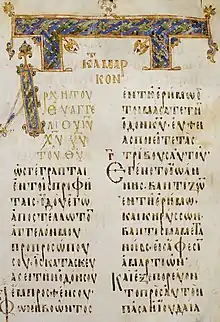 ΚΑΤΑ ΜΑΡ
ΚΟΝ
ΑΡΧΗ ΤΟΥ
ΕΥΑΓΓΕ
ΛΙΟΥ ΙΥ
ΧΥ ΥΙΟΥ
ΤΟΥ ΘΥ
ωϲ γεγραπται
εν τοιϲ προφη
ταιϲ ιδου εγω
αποϲτελλω τον
αγγελον μου
προ προϲωπου
ϲου οϲ καταϲκευ
αϲει την οδον ϲου
εμπροϲθεν ϲου
φωνη βοωντοϲ
εν τη ερημω ε
τοιμαϲατε την
οδον κυ ευθει
αϲ ποιειτε ταϲ
τριβουϲ αυτου
Εγενετο ιωαν
νηϲ βαπτιζων
εν τη ερημω
και κηρυϲϲων
βαπτιϲμα μετα
νοιαϲ ειϲ αφεϲιν
αμαρτιων
Και εξεπορευε
το προϲ αυτον
παϲα η ιουδαια